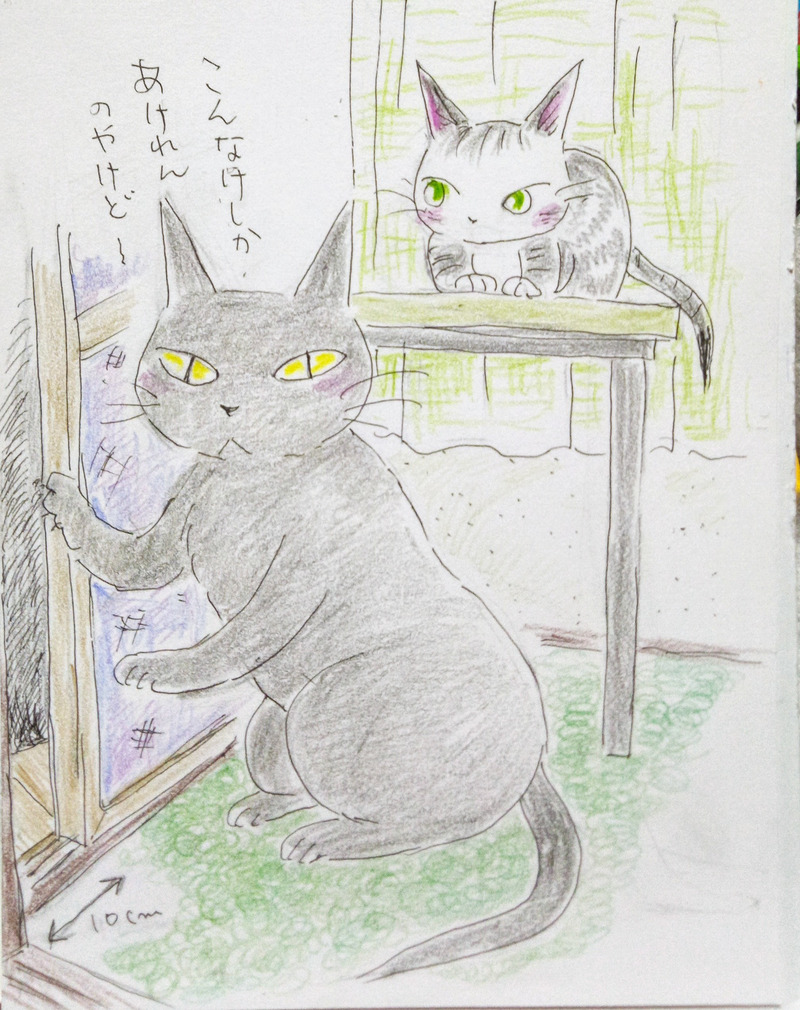 こんなけしか、
あけれん
のやけど～
10cm